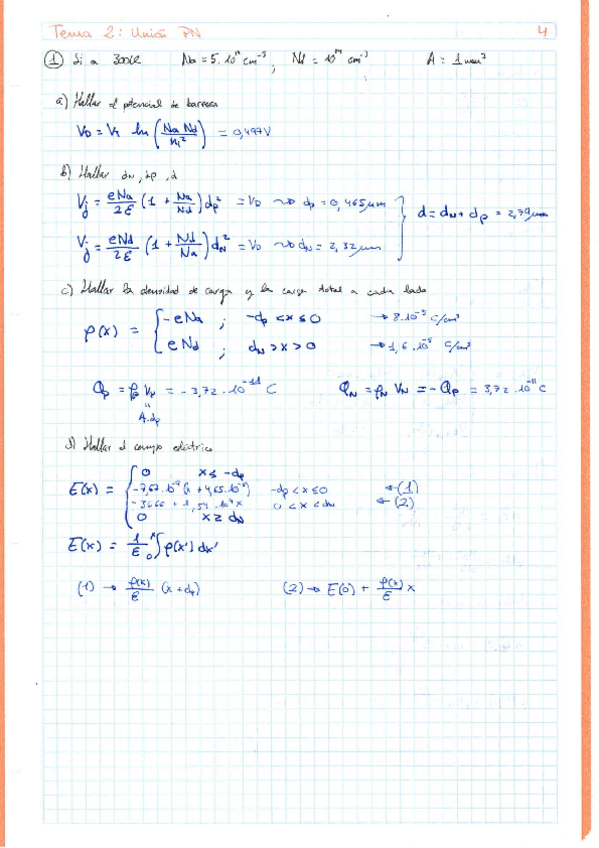 Tema 2: Unión PN 4
① Si a 300K Na = 5·10¹⁴ cm⁻³ ; Nd = 10¹⁴ cm⁻³ A = 1mm²
a) Hallar el potencial de barrera
V₀ = V_T ln (Na Nd / ni²) = 0,497V
b) Hallar dN, dp, d
Vj = eNa/2ε (1 + Na/Nd) dp² = V₀ ⇝ dp = 0,465µm
d = dN + dp = 2,79µm
Vj = eNd/2ε (1 + Nd/Na) dN² = V₀ ⇝ dN = 2,32µm
c) Hallar la densidad de carga y la carga total a cada lado
ρ(x) = { -eNa ; -dp < x ≤ 0 → 8·10⁻⁵ C/cm³
eNd ; dN > x > 0 → 1,6·10⁻⁵ C/cm³
Qp = ρp Vp = -3,72·10⁻¹¹ C QN = ρN VN = -Qp = 3,72·10⁻¹¹ C
A·dp
d) Hallar el campo eléctrico
E(x) = { 0 x ≤ -dp
-dp < x ≤ 0 ←(1)
0 < x < dN ←(2)
0 x ≥ dN
E(x) = 1/ε ₀∫ˣ ρ(x') dx'
(1) → ρ(x)/ε (x + dp) (2) → E(0) + ρ(x)/ε x